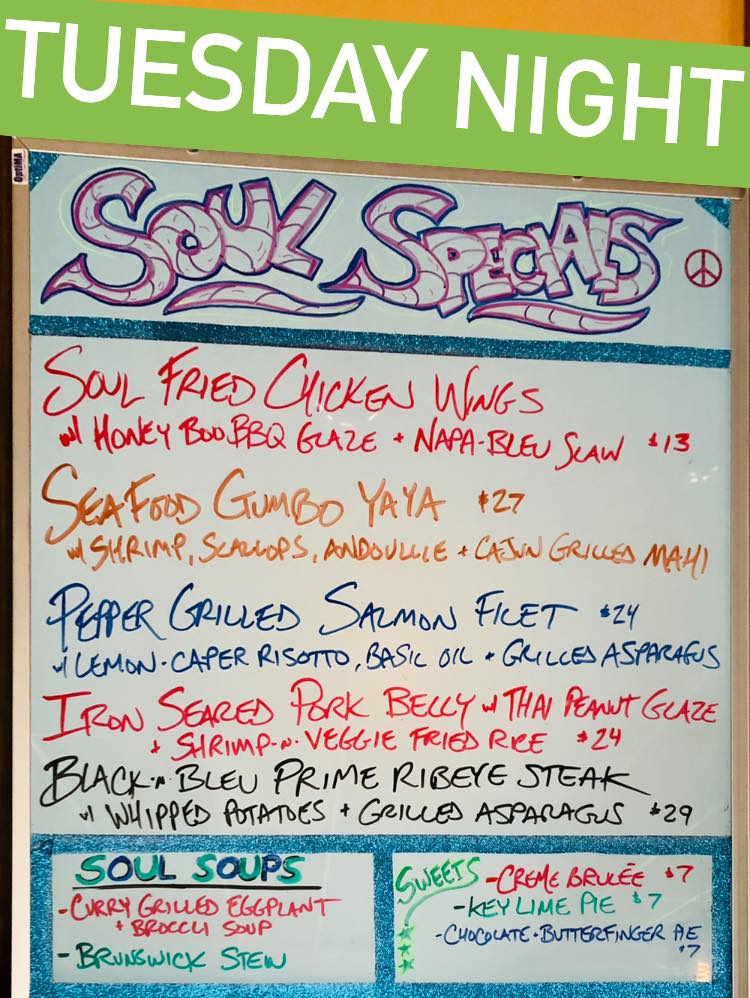 TUESDAY NIGHT
OptiMA
SOUL SPECIALS
SOUL FRIED CHICKEN WINGS
w/ HONEY BOO BBQ GLAZE + NAPA-BLEU SLAW $13
SEAFOOD GUMBO YAYA $27
w/ SHRIMP, SCALLOPS, ANDOULLIE + CAJUN GRILLED MAHI
PEPPER GRILLED SALMON FILET $24
w/ LEMON-CAPER RISOTTO, BASIL OIL + GRILLED ASPARAGUS
IRON SEARED PORK BELLY w/ THAI PEANUT GLAZE
+ SHRIMP-N-VEGGIE FRIED RICE $24
BLACK-N-BLEU PRIME RIBEYE STEAK
w/ WHIPPED POTATOES + GRILLED ASPARAGUS $29
SOUL SOUPS
-CURRY GRILLED EGGPLANT
+ BROCCLI SOUP
- BRUNSWICK STEW
SWEETS -CREME BRULÉE $7
-KEY LIME PIE $7
-CHOCOLATE-BUTTERFINGER PIE
$7